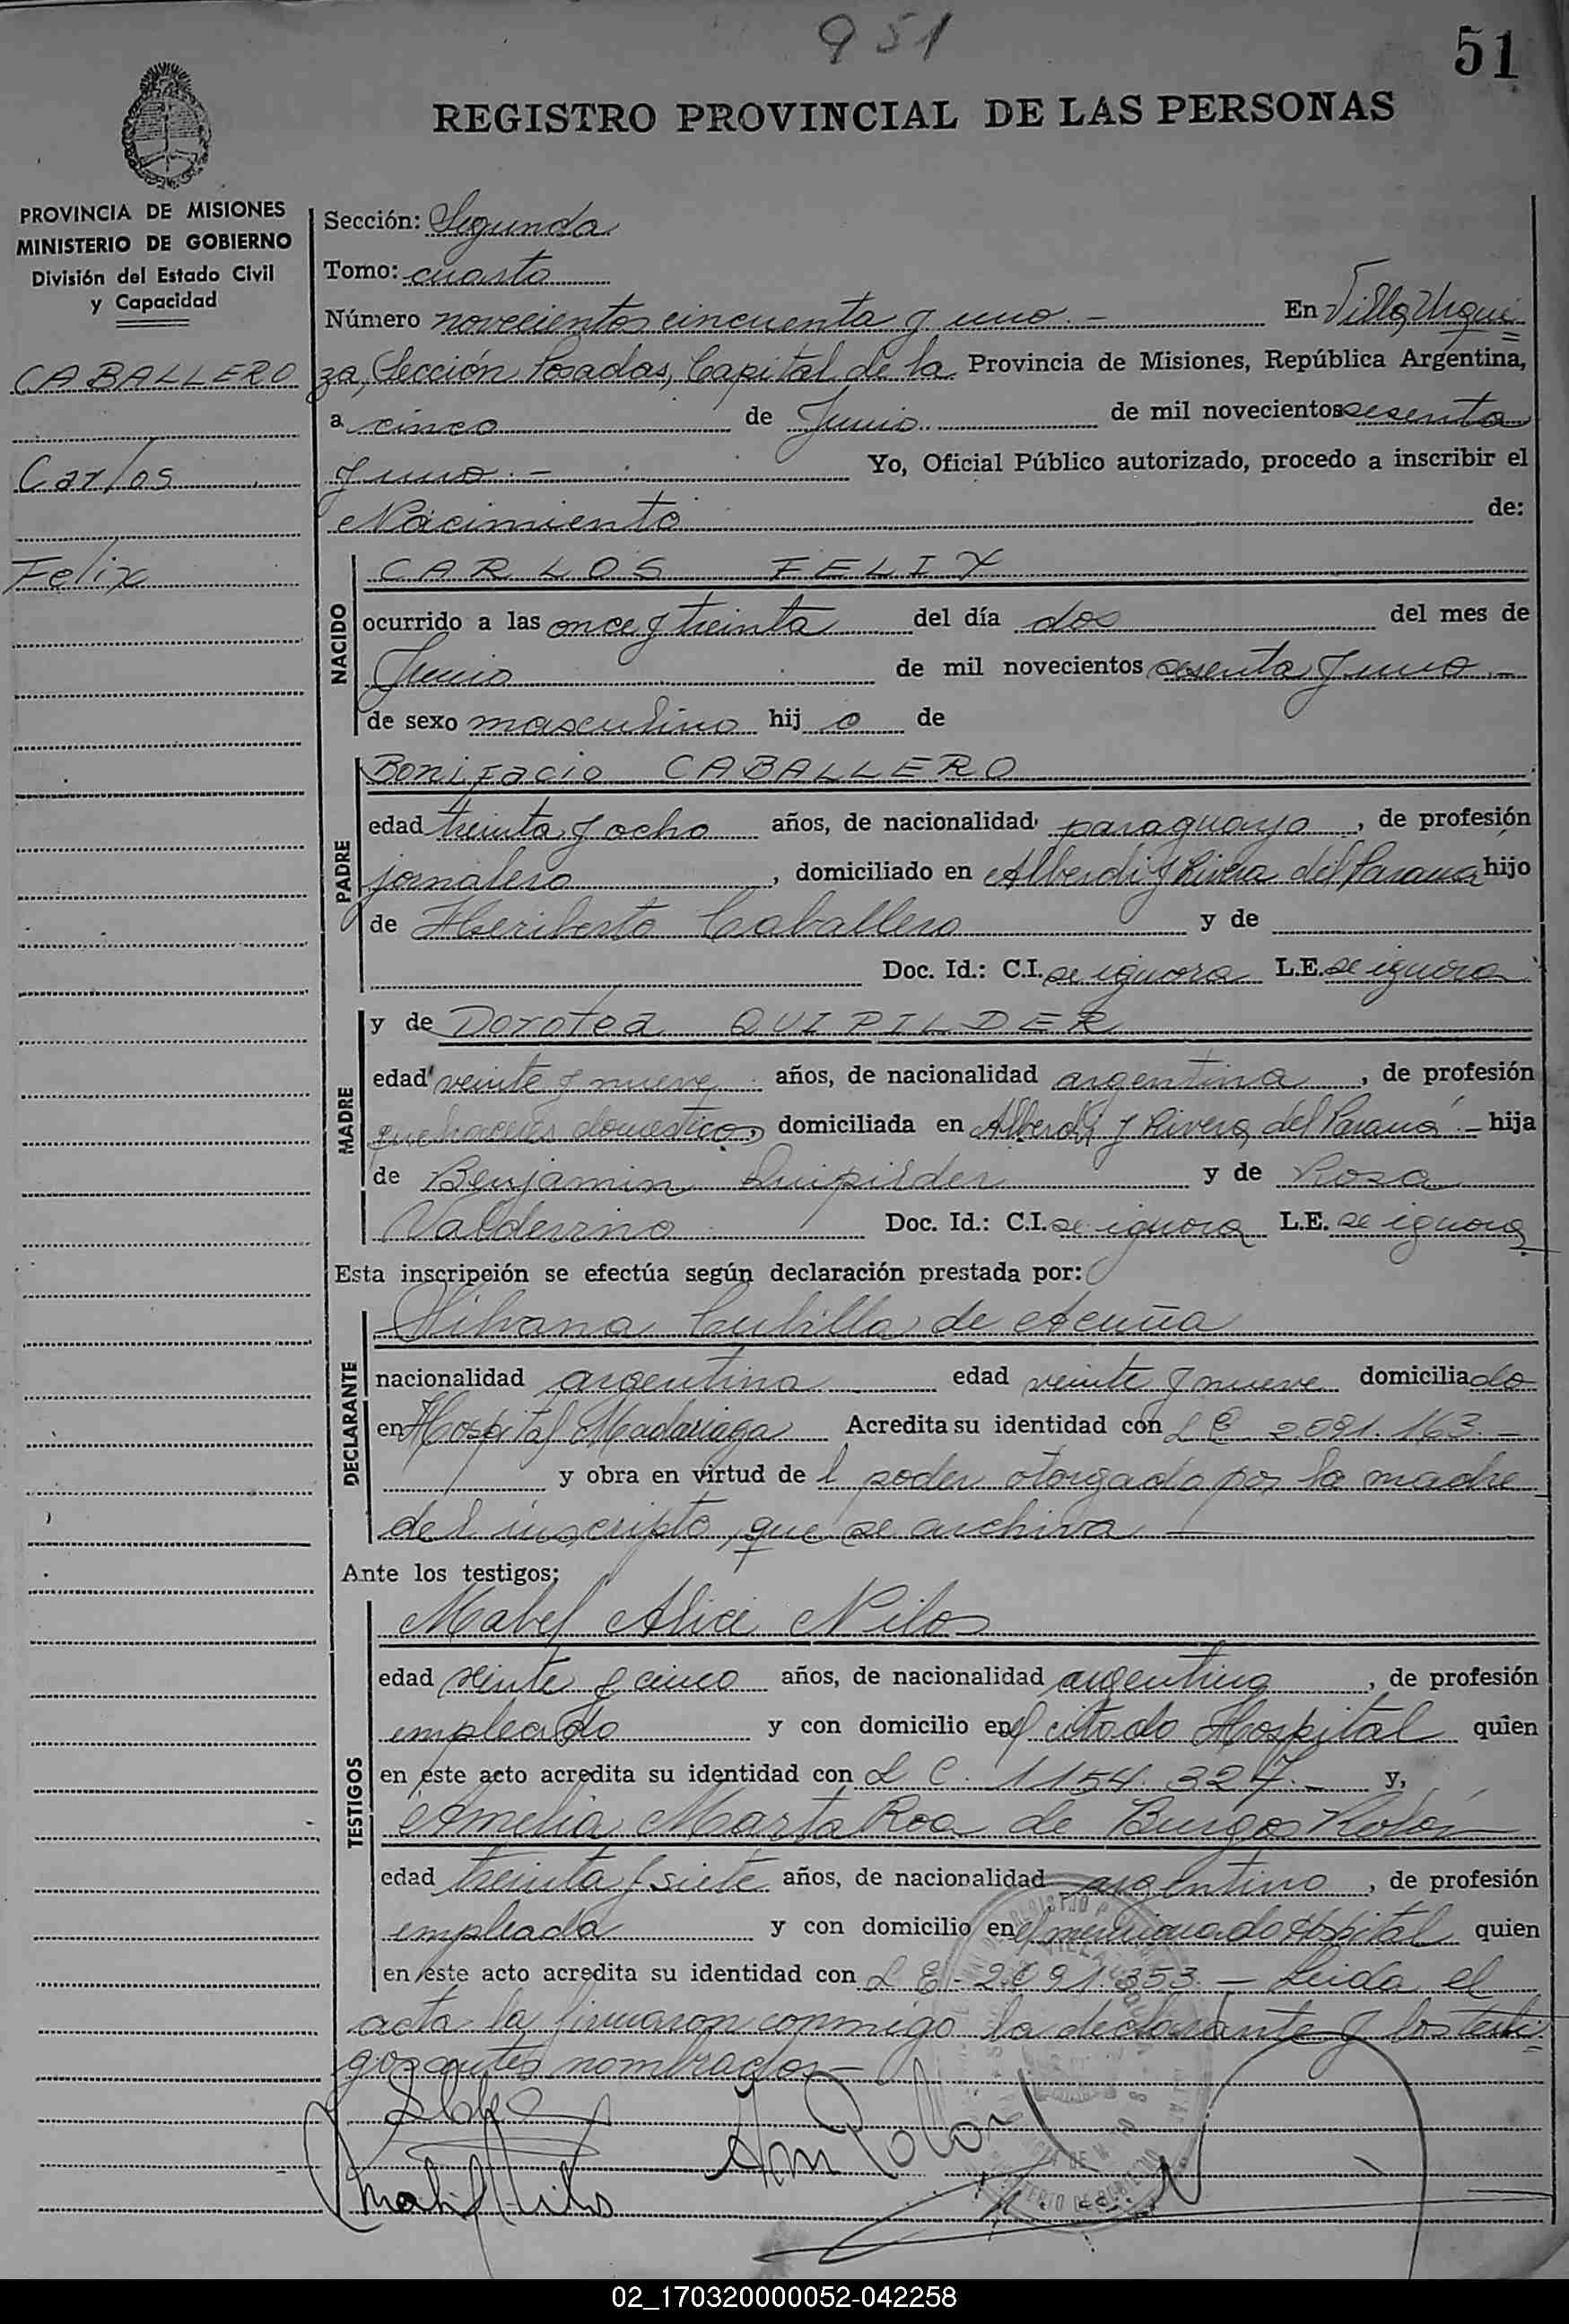 951
51
REGISTRO PROVINCIAL DE LAS PERSONAS
PROVINCIA DE MISIONES
MINISTERIO DE GOBIERNO
División del Estado Civil
y Capacidad
CABALLERO
Carlos
Felix
Sección: Segunda
Tomo: cuarto
Número novecientos cincuenta y uno.- En Villa Urqui
za, Sección Posadas, Capital de la Provincia de Misiones, República Argentina,
a cinco de Junio de mil novecientos sesenta
y uno.- Yo, Oficial Público autorizado, procedo a inscribir el
Nacimiento de:
NACIDO
CARLOS FELIX
ocurrido a las once y treinta del día dos del mes de
Junio de mil novecientos sesenta y uno.-
de sexo masculino hij o de
PADRE
Bonifacio CABALLERO
edad treinta y ocho años, de nacionalidad paraguayo, de profesión
jornalero, domiciliado en Alberdi y Rivera del Parana hijo
de Heriberto Caballero y de
Doc. Id.: C.I. se ignora L.E. se ignora
MADRE
y de Dorotea QUIPILDER
edad veinte y nueve años, de nacionalidad argentina, de profesión
quehaceres domestico, domiciliada en Alberdi y Rivera del Paraná.- hija
de Benjamin Quipilder y de Rosa
Doc. Id.: C.I. se ignora L.E. se ignora
Esta inscripción se efectúa según declaración prestada por:
DECLARANTE
Silvana Cubilla de Acuña
nacionalidad argentina edad veinte y nueve domiciliado
en Hospital Madariaga Acredita su identidad con L E 2.091.163.-
y obra en virtud de l poder otorgado por la madre
del inscripto que se archiva
Ante los testigos:
TESTIGOS
Mabel Alice Nilos
edad veinte y cinco años, de nacionalidad argentina, de profesión
empleado y con domicilio en el citado Hospital quien
en este acto acredita su identidad con L C. 1154.327.- y,
Amelia Marta Roa de Burgos
edad treinta y siete años, de nacionalidad argentino, de profesión
empleada y con domicilio en el mencionado Hospital quien
en este acto acredita su identidad con L E - 2.091.353.- Leida el
acta la firmaron conmigo la declarante y los testi
gos antes nombrados-
02_170320000052-042258